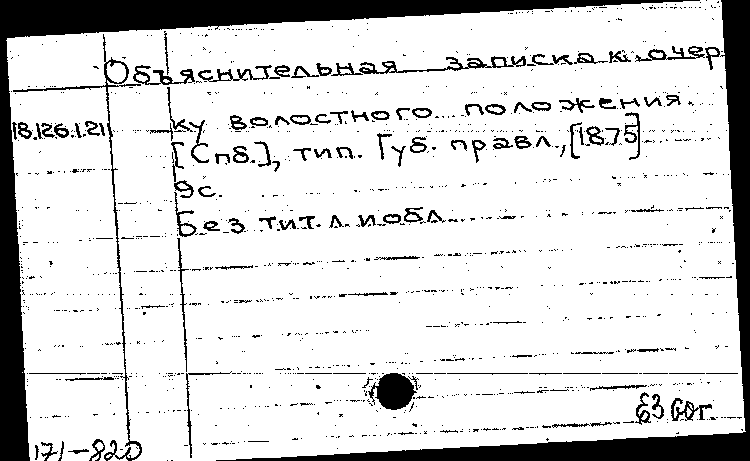 Объяснительная записка к очер
ку волостного положения.
18.126.1.21
[Спб.], тип. Губ. правл., [1875]
9с.
Без тит. л. и обл.
171-820